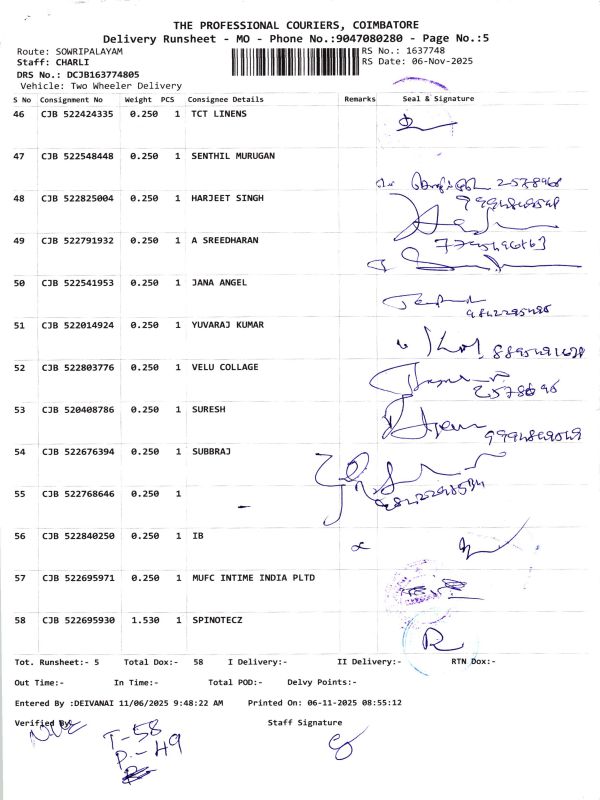 THE PROFESSIONAL COURIERS, COIMBATORE
Delivery Runsheet - MO - Phone No.:9047080280 - Page No.:5
Route: SOWRIPALAYAM RS No.: 1637748
Staff: CHARLI RS Date: 06-Nov-2025
DRS No.: DCJB163774805
Vehicle: Two Wheeler Delivery
S No Consignment No Weight PCS Consignee Details Remarks Seal & Signature
46 CJB 522424335 0.250 1 TCT LINENS
47 CJB 522548448 0.250 1 SENTHIL MURUGAN
2578968
48 CJB 522825004 0.250 1 HARJEET SINGH
49 CJB 522791932 0.250 1 A SREEDHARAN
50 CJB 522541953 0.250 1 JANA ANGEL
51 CJB 522014924 0.250 1 YUVARAJ KUMAR
52 CJB 522803776 0.250 1 VELU COLLAGE
53 CJB 520408786 0.250 1 SURESH
54 CJB 522676394 0.250 1 SUBBRAJ
55 CJB 522768646 0.250 1
56 CJB 522840250 0.250 1 IB
57 CJB 522695971 0.250 1 MUFC INTIME INDIA PLTD
58 CJB 522695930 1.530 1 SPINOTECZ
Tot. Runsheet:- 5 Total Dox:- 58 I Delivery:- II Delivery:- RTN Dox:-
Out Time:- In Time:- Total POD:- Delvy Points:-
Entered By :DEIVANAI 11/06/2025 9:48:22 AM Printed On: 06-11-2025 08:55:12
Verified By: Staff Signature
T-58
P.-49